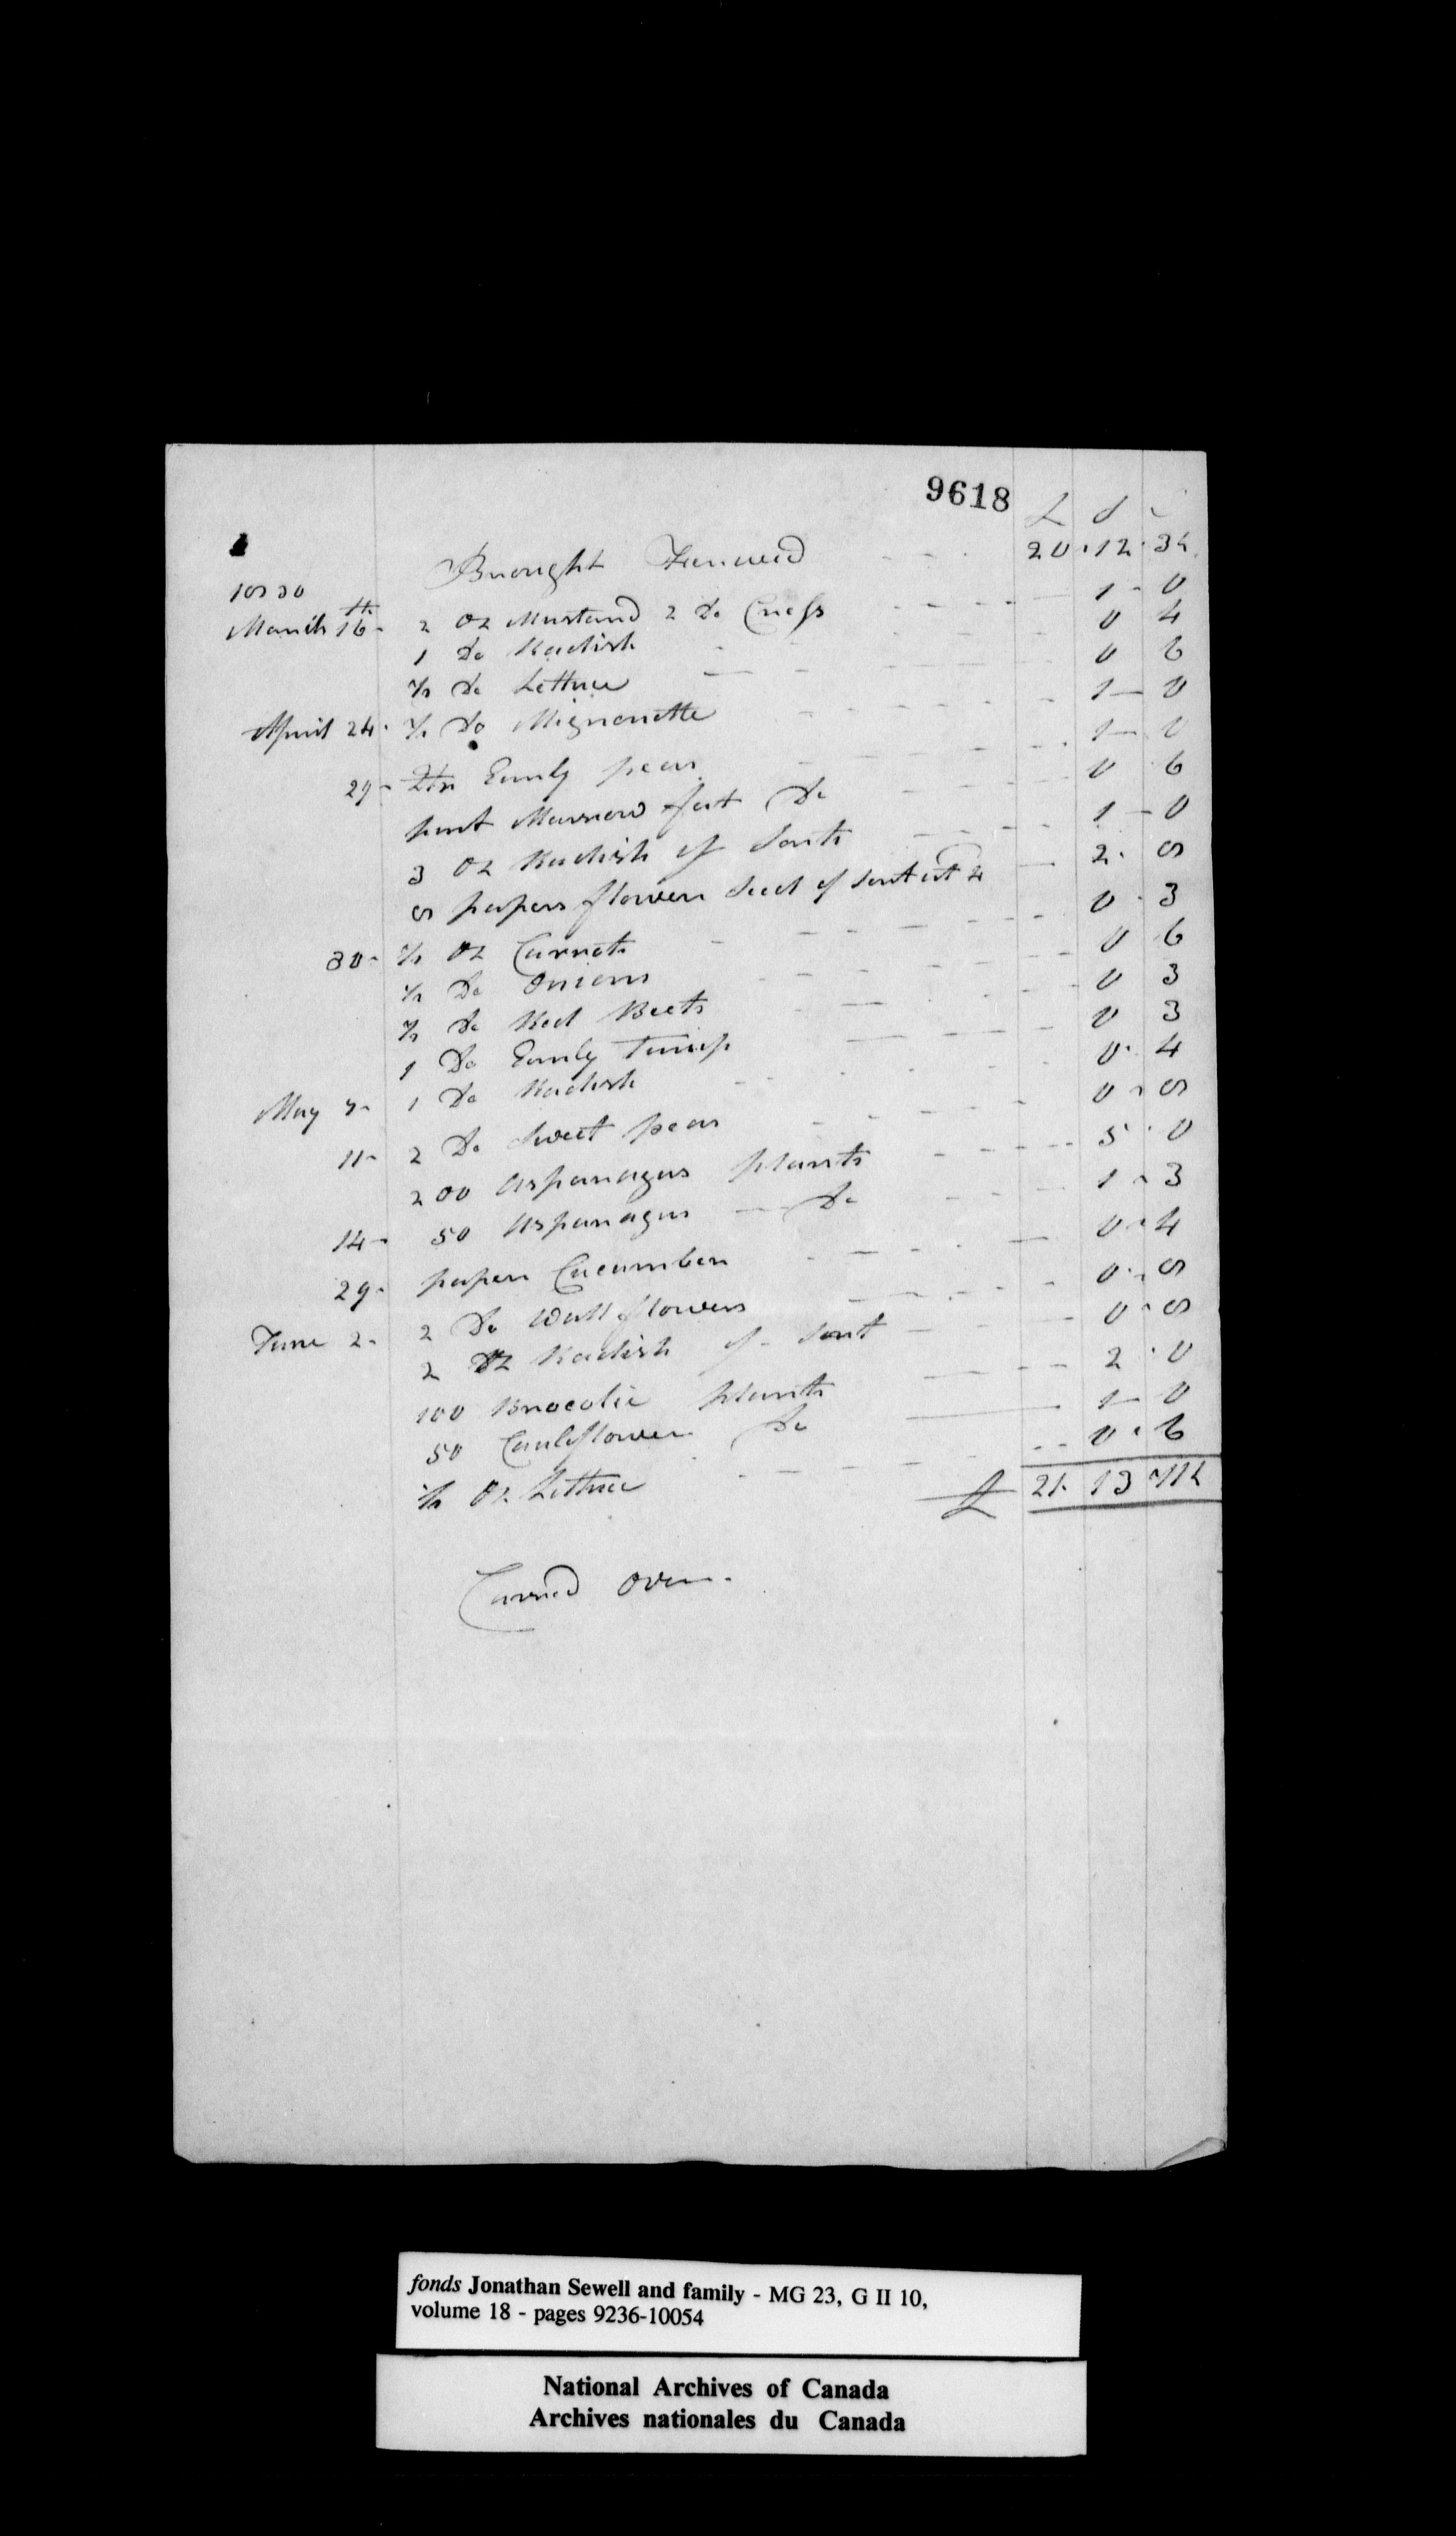 9618
£ s
Brought Forward 20 . 12 . 3½
1830
March 16th 2 Oz Mustard 2 Do Cress 1 - 0
1 Do Radish 0 4
½ Do Lettuce 0 6
April 24 . ½ Do Mignonette 1 - 0
29 - Early peas 1 - 0
pint Marrow fat Do 0 6
3 Oz Radish of Sorts 1 - 0
8 papers flower Seed of Sort at 4 2 . 8
30 - ½ Oz Carrots 0 . 3
½ Do Onions 0 6
½ Do Red Beets 0 3
1 Do Early Turnip 0 3
May 7 - 1 Do Radish 0 . 4
11 - 2 Do Sweet peas 0 - 8
200 Asparagus plants 5 . 0
14 - 50 Asparagus — Do 1 - 3
29 - paper Cucumber 0 - 4
June 2 - 2 Do Wall flowers 0 - 8
2 Oz Radish of Sort 0 - 8
100 Brocolie plants 2 . 0
50 Cauliflower Do 1 - 0
½ Oz Lettuce 0 . 6
£ 21 . 13 11½
Carried Over -
fonds Jonathan Sewell and family - MG 23, G II 10,
volume 18 - pages 9236-10054
National Archives of Canada
Archives nationales du Canada